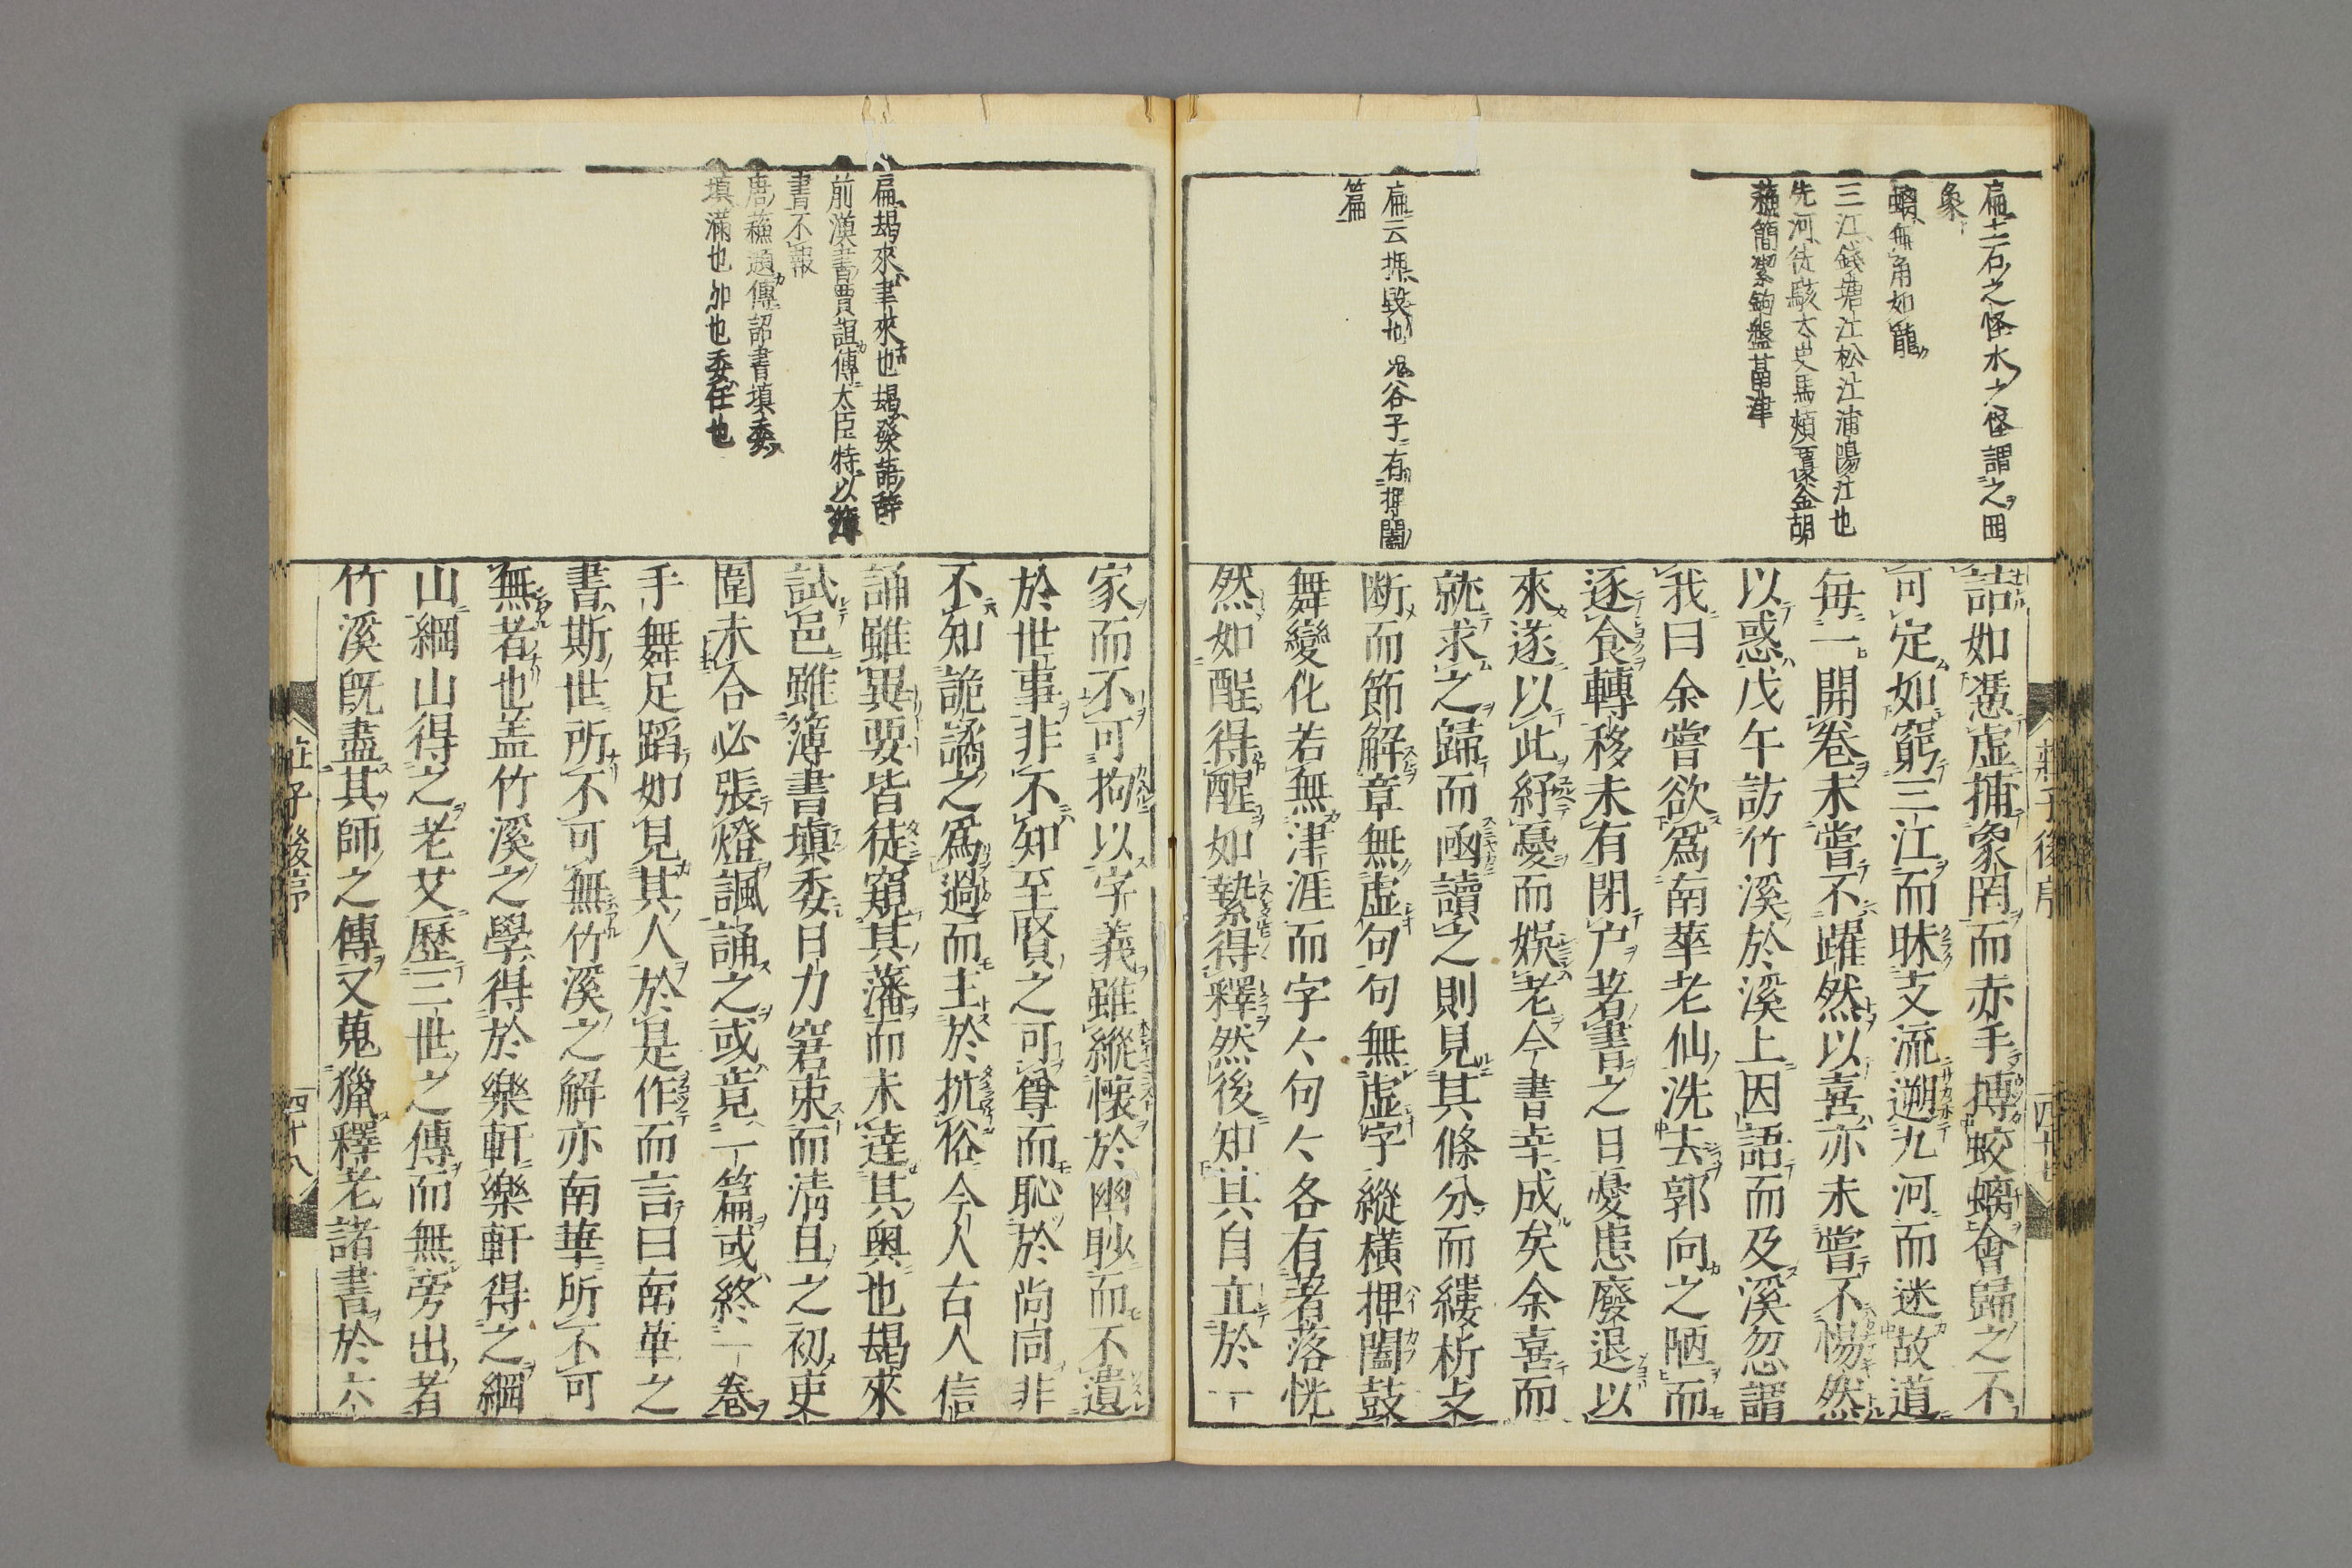 扁土石之怪水之怪謂之罔
象
螭無角如龍
三江錢塘江松江浦陽江也
先河徒駭太史馬頰覆釜胡
蘓簡潔鉤盤鬲津
扁云振毀也鬼谷子有捭闔
篇
詰如憑虛捕象罔而赤手搏蛟螭會歸之不
可定如窮三江而昧支流遡九河而迷故道
每一開卷未嘗不躍然以喜亦未嘗不惕然
以惑戊午訪竹溪於溪上因語而及溪忽謂
我曰余嘗欲爲南華老仙洗去郭向之陋而
逐食轉移未有閉户著書之日憂患廢退以
來遂以此紓憂而娯老今書幸成矣余喜而
就求之歸而凾讀之則見其條分而縷析支
断而節解章無虚句句無虚字縱横押闔鼓
舞變化若無津涯而字〻句〻各有著落恍
然如酲得醒如縶得釋然後知其自立於一
莊子後序
四十七
扁朅來聿來也朅發語辭
前漢書賈誼傳大臣特以簿
書不報
唐蘓頲傳詔書填委
填滿也加也委任也
家而不可拘以字義雖縱懐於幽眇而不遺
於世事非不知至賢之可尊而恥於尚同非
不知詭譎之爲過而主於抗俗今人右人信
誦雖異要皆徒窺其藩而未逹其奥也朅來
試邑雖簿書填委日力窘束而清旦之初吏
圍未合必張燈諷誦之或竟一篇或終一卷
手舞足蹈如見其人於是作而言曰南華之
書斯世所不可無竹溪之解亦南華所不可
無者也盖竹溪之學得於樂軒樂軒得之綱
山綱山得之老艾歴三世之傳而無旁出者
竹溪既盡其師之傳又蒐獵釋老諸書於六
莊子後序
四十八